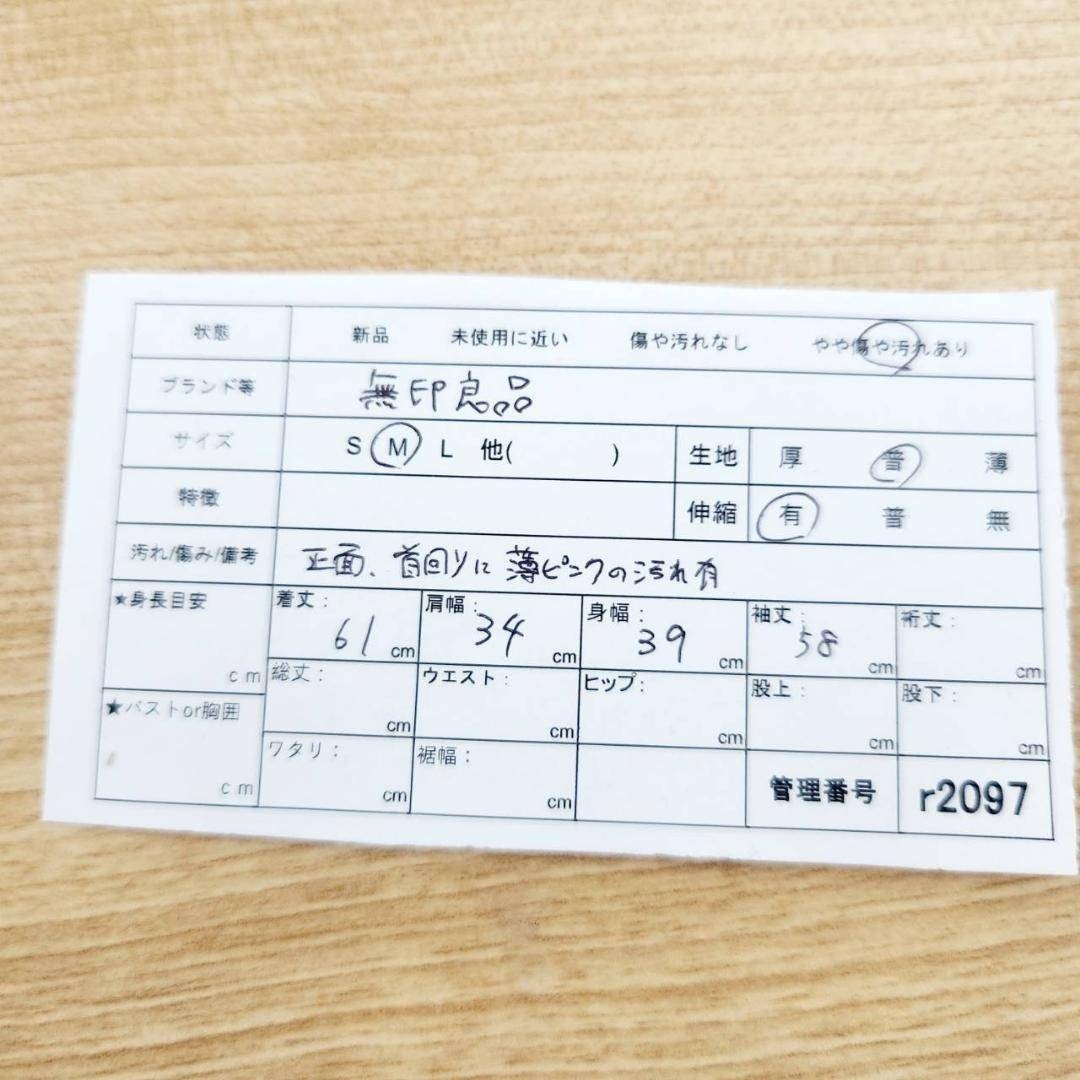 状態 新品 未使用に近い 傷や汚れなし やや傷や汚れあり
ブランド等 無印良品
サイズ S M L 他( ) 生地 厚 普 薄
特徴 伸縮 有 普 無
汚れ/傷み/備考 正面、首回りに薄ピンクの汚れ有
★身長目安 cm 着丈: 61 cm 肩幅: 34 cm 身幅: 39 cm 袖丈: 58 cm 裄丈: cm
総丈: cm ウエスト: cm ヒップ: cm 股上: cm 股下: cm
★バストor胸囲 cm ワタリ: cm 裾幅: cm 管理番号 r2097